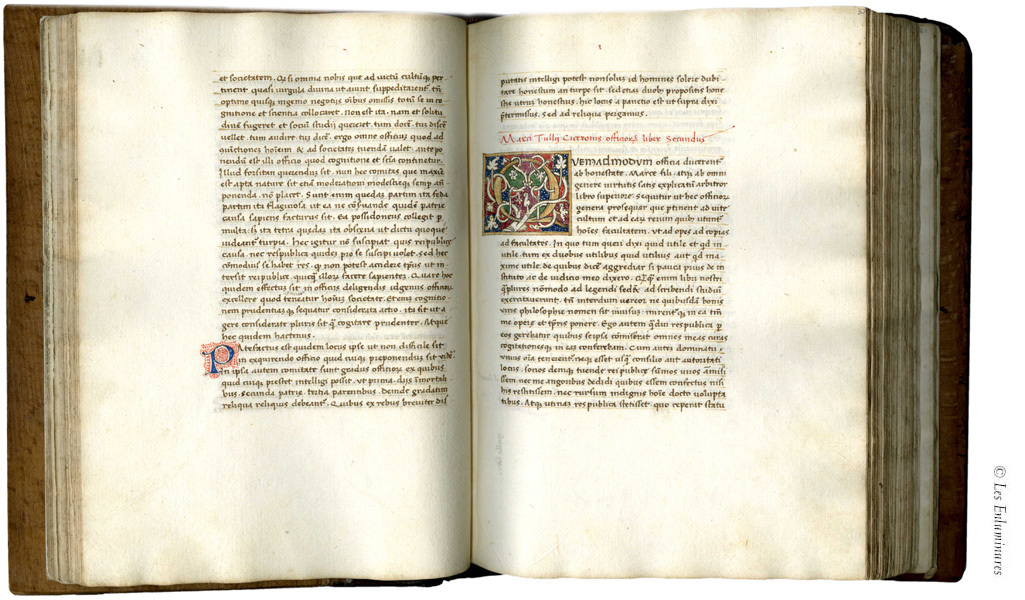 et societatem. Q̃ si omnia nobis que ad uictũ cultũq; per
tinent quasi uirgula diuina ut aiunt suppeditarent. tũ
optimo quisq; ingenio negotiis oĩbus omissis totũ se in co
gnitione et scientia collocaret. non est ita. nam et solitu
dinẽ fugeret et sociũ studii quereret. tum docẽ. tũ discẽ
uellet. tum audire. tũ dicẽ. ergo omne officium quod ad
ꝯiũctionẽ hoĩum & ad societatẽ tuendã ualet. antepo
nendũ est illi officio quod cognitione et sciã continetur.
Illud forsitan querendũ sit. nun hec comitas que maxĩe
est apta nature sit etiã moderationi modestieq; semp añ
ponenda. nõ placet. Sunt enim quedã partim ita feda
partim ita flagitiosa ut ea ne cõseruande quidẽ patrie
causa sapiens facturus sit. Ea possidonius collegit p̃
multa. si ita tetra quedã ita obscena ut dictu quoque
uideant̃ turpia. Hec igitur nõ suscipiat quis reipublice
causa. nec respublica quidẽ pro se suscipi uolet. sed hec
cõmodius se habet res. q̃ non potest accidere tp̃us ut in
tersit reipublice quicq̃ illor̃ facere sapientẽ. Quare hoc
quidem effectũ sit in officiis deligendis id genus officiorũ
excellere quod teneatur hoĩum societate. Etenĩ cognitio
nem prudentiãq; sequatur considerata actio. ita fit ut a
gere considerate pluris sit q̃ cogitare prudenter. Atque
hec quidem hactenus.
Patefactus est quidem locus ipse ut non difficile sit
in exquirendo officio quid cuiq; preponendũ sit uidẽ.
in ipsa autem comitate sunt gradus officiorũ ex quibus
quid cuiq; prestet intelligi possit. ut prima diis immortali
bus. secunda patrie. tertia parentibus. deinde gradatim
reliqua reliquis debeant̃. Quibus ex rebus breuiter dis
putatis intelligi potest non solũ id homines solere dubi
tare honestum an turpe sit. sed etiã duob; propositis hone
stis utrũ honestius. hic locus a panetio est ut supra dixi
p̃termissus. Sed ad reliqua pergamus.
Marci Tullij Ciceronis officiorũ liber secundus
QVEMADMODVM officia ducerent̃
ab honestate. Marce fili. atq; ab omni
genere uirtutis satis explicatũ arbitror
libro superiore. Sequitur ut hec officiorũ
genera prosequar que ptinent ad uite
cultum et ad earũ rerum quib; utunt̃
hoĩes facultatem. ut ad opes ad copias
ad facultates. In quo tum queri dixi quid utile et qd in
utile. tum ex duobus utilibus quid utilius aut qd ma
xime utile. de quibus dicẽ aggrediar si pauca prius de in
stituto ac de iudicio meo dixero. Q̃q̃ enim libri nostri
q̃plures nõ modo ad legendi sed & ad scribendi studiũ
excitauerunt. tñ interdum uereor ne quibusdã bonis
uiris philosophie nomen sit inuisum. mirent̃q; in ea tñ
me opere et tp̃ris ponere. Ego autem q̃diu respublica p
eos gerebatur quibus se ipsa cõmiserat omnes meas curas
cogitationesq; in eã conferebam. Cum autẽ dominatu
unius oĩa tenerent̃. neq; esset usq̃ consilio aut autoritati
locus. socios deniq; tuende reipublice summos uiros amisi
ssem. nec me angoribus dedidi quibus essem confectus nisi
his restitissem. nec rursum indignis hoĩe docto uolupta
tibus. Atq; utinã respublica stetisset quo ceperat statu
© Les Enluminures